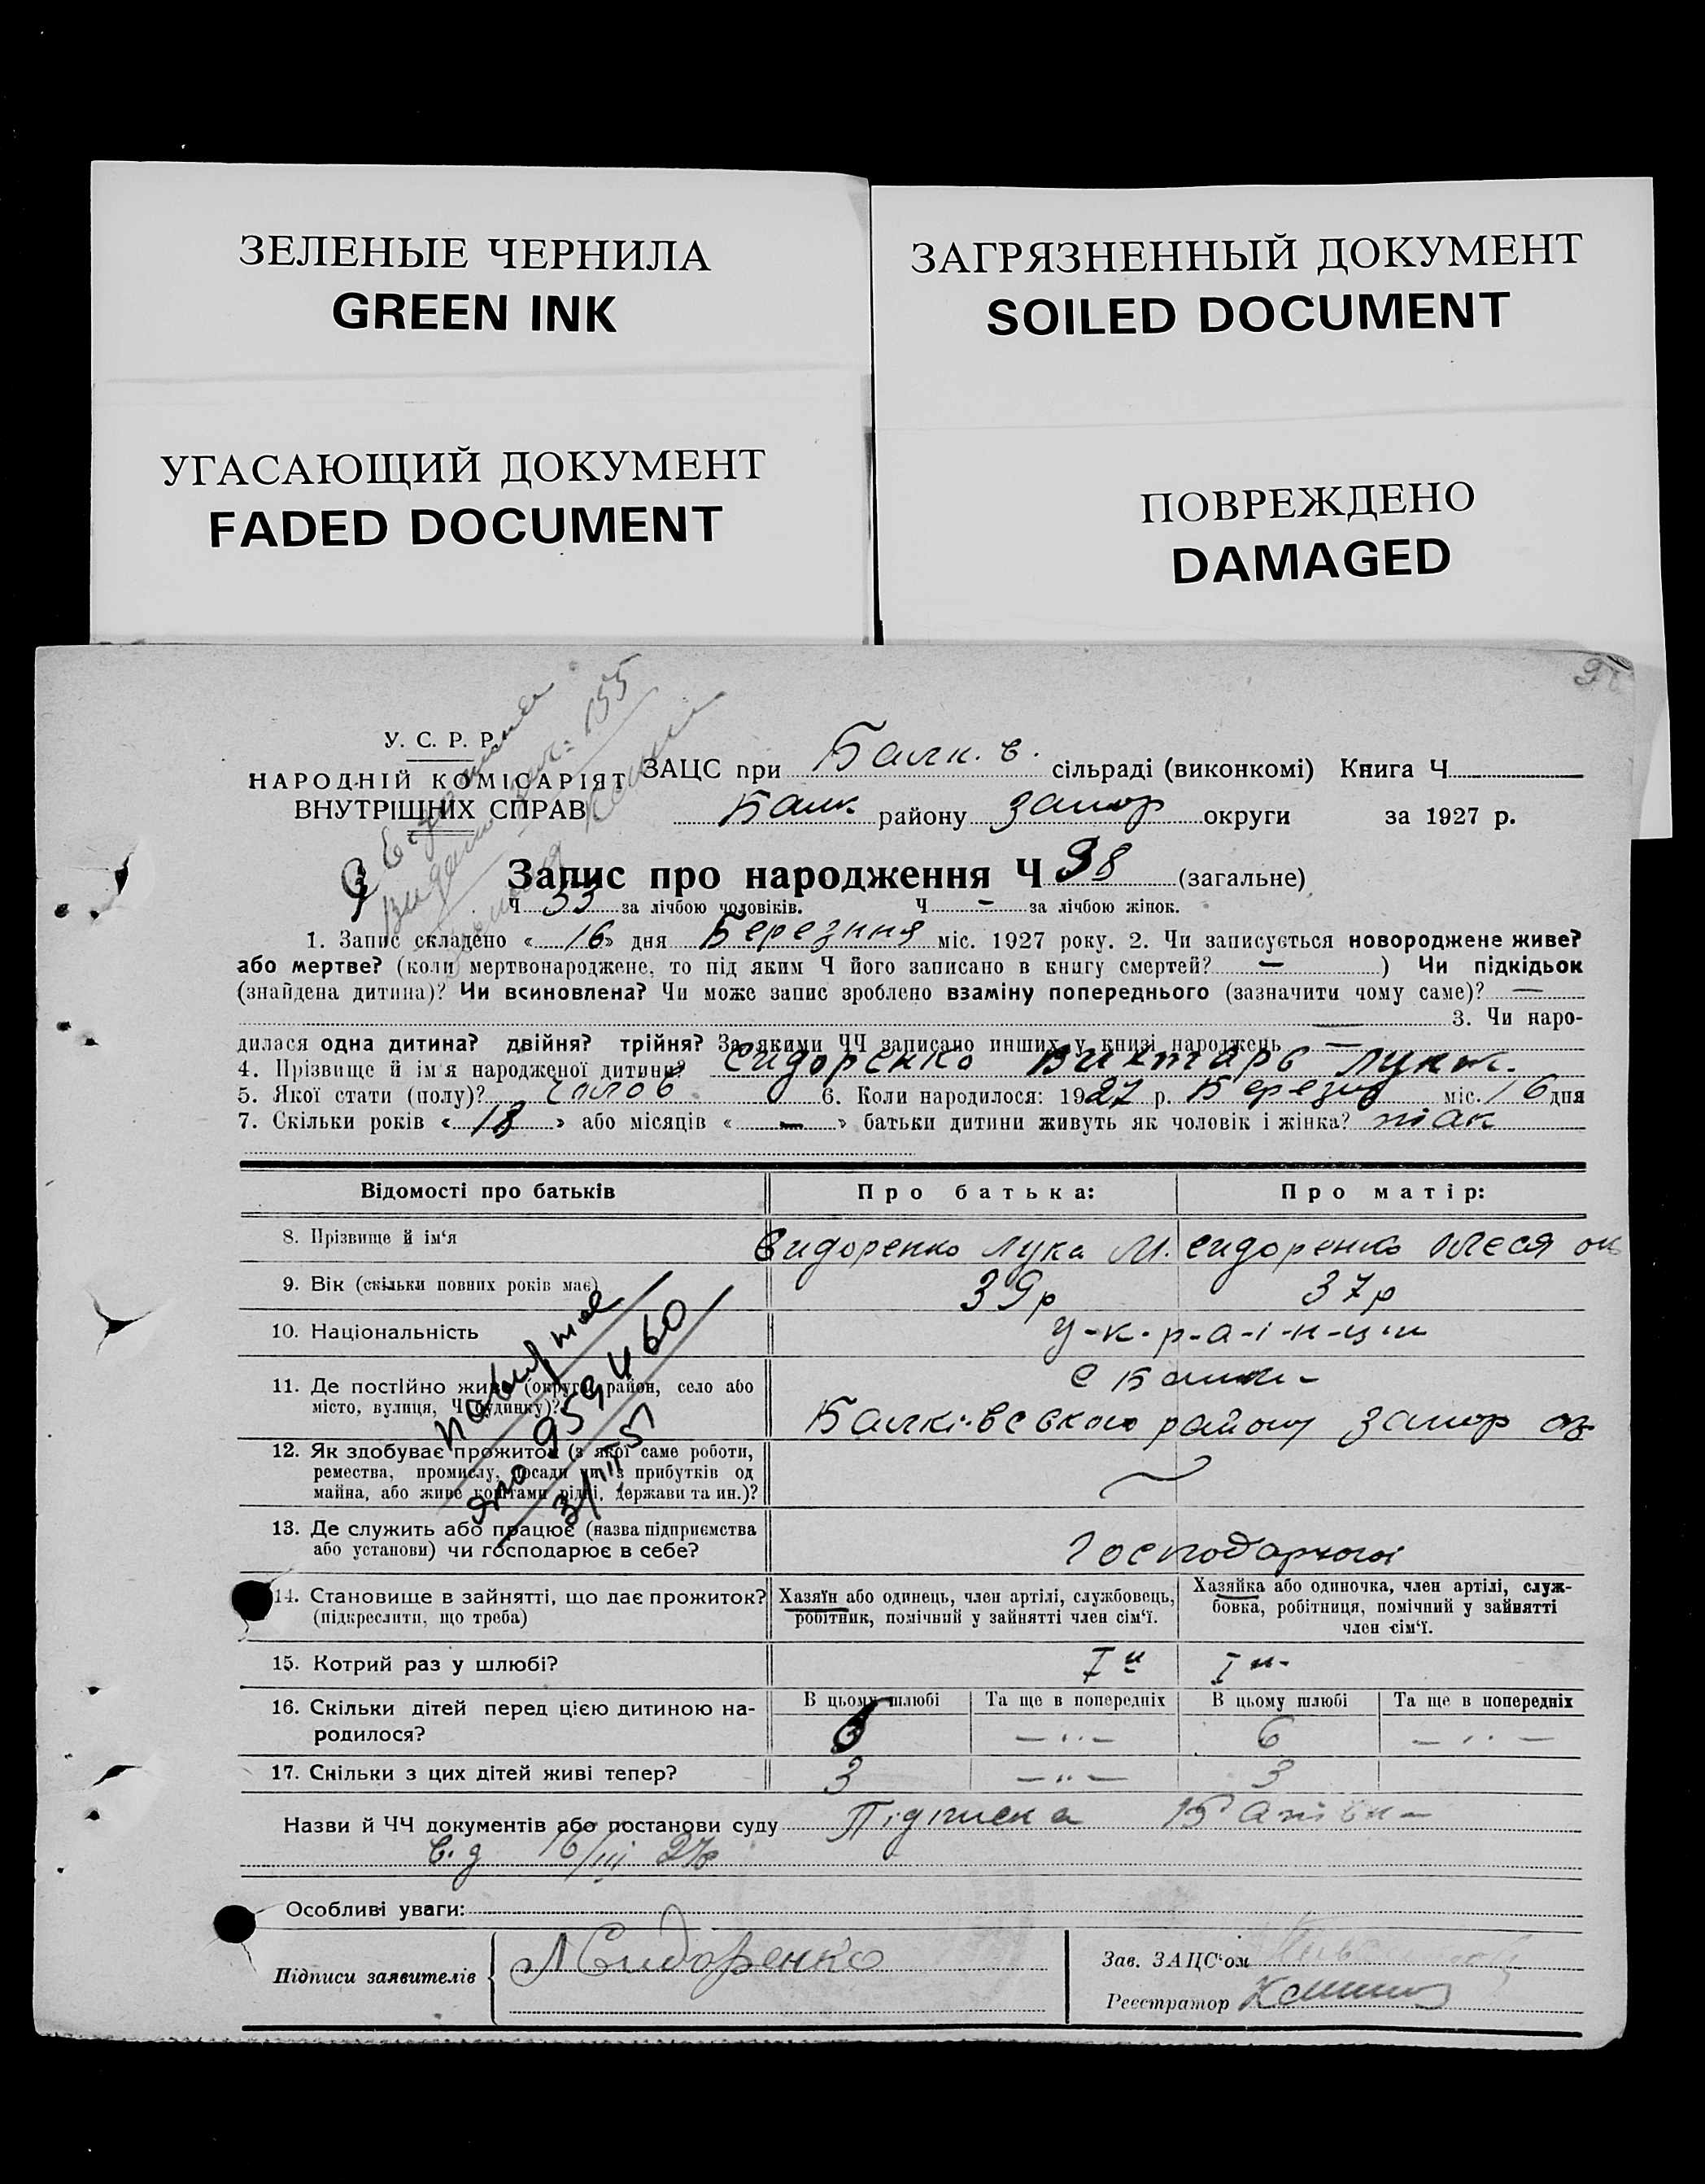 ЗЕЛЕНЫЕ ЧЕРНИЛА
GREEN INK
УГАСАЮЩИЙ ДОКУМЕНТ
FADED DOCUMENT
ЗАГРЯЗНЕННЫЙ ДОКУМЕНТ
SOILED DOCUMENT
ПОВРЕЖДЕНО
DAMAGED
У. С. Р. Р.
НАРОДНІЙ КОМІСАРІЯТ
ВНУТРІШНІХ СПРАВ
ЗАЦС при Балк. в. сільраді (виконкомі) Книга Ч
Балк району Запор округи за 1927 р.
Запис про народження Ч 98 (загальне)
Ч 53 за лічбою чоловіків. Ч - за лічбою жінок.
1. Запис складено «16» дня Березння міс. 1927 року. 2. Чи записується новороджене живе?
або мертве? (коли мертвонароджене, то під яким Ч його записано в книгу смертей? — ) Чи підкідьок
(знайдена дитина)? Чи всиновлена? Чи може запис зроблено взаміну попереднього (зазначити чому саме)? —
— 3. Чи наро-
дилася одна дитина? двійня? трійня? За якими ЧЧ записано инших у книзі народжень —
4. Прізвище й ім'я народженої дитини? Сидоренко Виктарь Лукич.
5. Якої стати (полу)? чолов 6. Коли народилося: 1927 р. Березня міс. 16 дня
7. Скільки років «18» або місяців «-» батьки дитини живуть як чоловік і жінка? так
Відомості про батьків
Про батька:
Про матір:
8. Прізвище й ім'я Сидоренко Лука М. Сидоренко
9. Вік (скільки повних років має) 39р 37р
10. Національність у-к-р-а-і-н-ци
11. Де постійно живе (округа, район, село або
місто, вулиця, Ч будинку)? с Балки
Балківського району Запор ок
12. Як здобуває прожиток (з якої саме роботи,
ремества, промислу, посади чи з прибутків од
майна, або живе коштами рідні, держави та ин.)?
13. Де служить або працює (назва підприємства
або установи) чи господарює в себе? Господарюют
14. Становище в зайнятті, що дає прожиток?
(підкреслити, що треба)
Хазяїн або одинець, член артілі, службовець,
робітник, помічний у зайнятті член сім'ї.
Хазяйка або одиночка, член артілі, служ-
бовка, робітниця, помічний у зайнятті
член сім'ї.
15. Котрий раз у шлюбі? І й І й-
16. Скільки дітей перед цією дитиною на-
родилося?
В цьому шлюбі Та ще в попередніх В цьому шлюбі Та ще в попередніх
6 —"— 6 —"—
17. Скільки з цих дітей живі тепер? 3 —"— 3
Назви й ЧЧ документів або постанови суду Підписка
16/III 27р
Особливі уваги:
Підписи заявителів Л Сидоренко
Зав. ЗАЦС'ом
Реєстратор
повторное
ЯЮ 959460
3/III 51